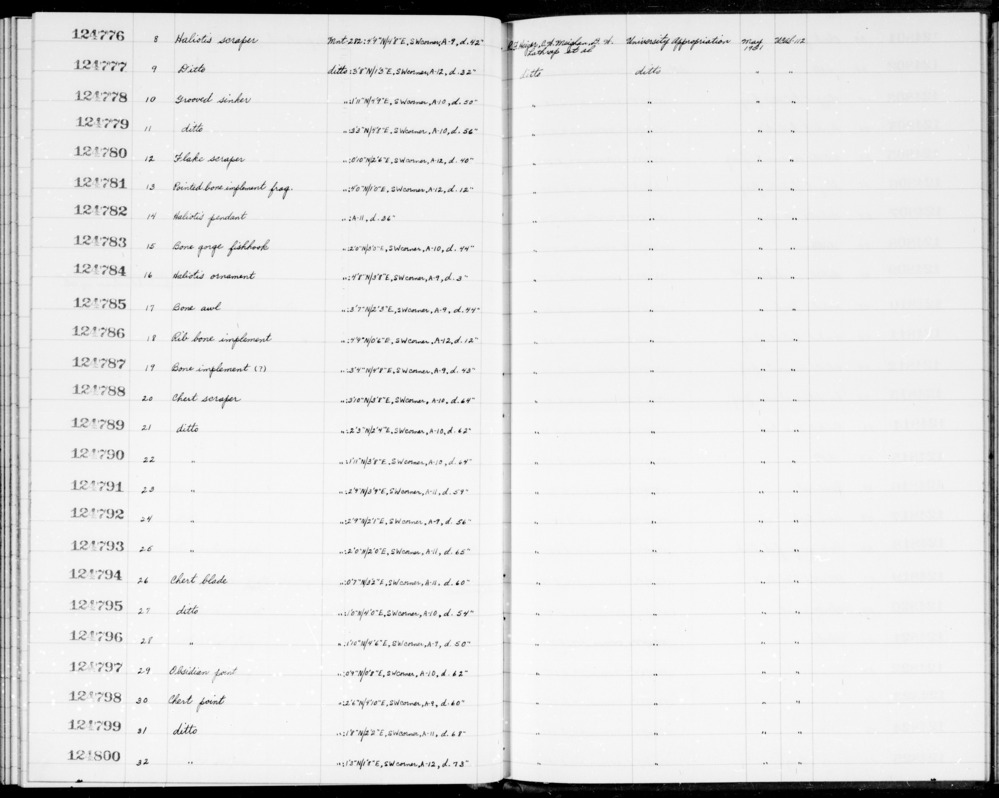 124776 8 Haliotis scraper Mnt-282:4'4"N/4'8"E, SW corner, A-9, d. 42" University Appropriation May 1951
124777 9 Ditto ditto:3'8"N/1'3"E, SW corner, A-12, d. 32" ditto ditto " "
124778 10 Grooved sinker ":1'11"N/4'9"E, SW corner, A-10, d. 50" " " " "
124779 11 ditto A-10, d. 56" " " " "
124780 12 Flake scraper ":0'10"N/2'6"E, SW corner, A-12, d. 40" " " " "
124781 13 Pointed bone implement frag. ":4'0"N/1'0"E, SW corner, A-12, d. 12" " " " "
124782 14 Haliotis pendant ":A-11, d. 36" " " " "
124783 15 Bone gorge fishhook ":2'0"N/3'0"E, SW corner, A-10, d. 44" " " " "
124784 16 Haliotis ornament ":4'8"N/3'8"E, SW corner, A-9, d. 3" " " " "
124785 17 Bone awl ":3'7"N/2'3"E, SW corner, A-9, d. 44" " " " "
124786 18 Rib bone implement ":4'4"N/0'6"E, SW corner, A-12, d. 12" " " " "
124787 19 Bone implement (?) ":3'4"N/4'8"E, SW corner, A-9, d. 43" " " " "
124788 20 Chert scraper ":3'10"N/3'8"E, SW corner, A-10, d. 64" " " " "
124789 21 ditto ":2'3"N/2'4"E, SW corner, A-10, d. 62" " " " "
124790 22 " ":1'11"N/3'8"E, SW corner, A-10, d. 64" " " " "
124791 23 " ":2'9"N/3'9"E, SW corner, A-11, d. 59" " " " "
124792 24 " ":2'9"N/2'1"E, SW corner, A-9, d. 56" " " " "
124793 25 " ":2'0"N/2'0"E, SW corner, A-11, d. 65" " " " "
124794 26 Chert blade ":0'7"N/3'2"E, SW corner, A-11, d. 60" " " " "
124795 27 ditto ":1'0"N/4'0"E, SW corner, A-10, d. 54" " " " "
124796 28 " ":1'10"N/4'6"E, SW corner, d. 50" " " " "
124797 29 Obsidian point SW corner, A-10, d. 62" " " " "
124798 30 Chert point ":2'6"N/4'10"E, SW corner, A-9, d. 60" " " " "
124799 31 ditto ":1'8"N/2'2"E, SW corner, A-11, d. 68" " " " "
124800 32 " ":1'3"N/1'8"E, SW corner, A-12, d. 73" " " " "